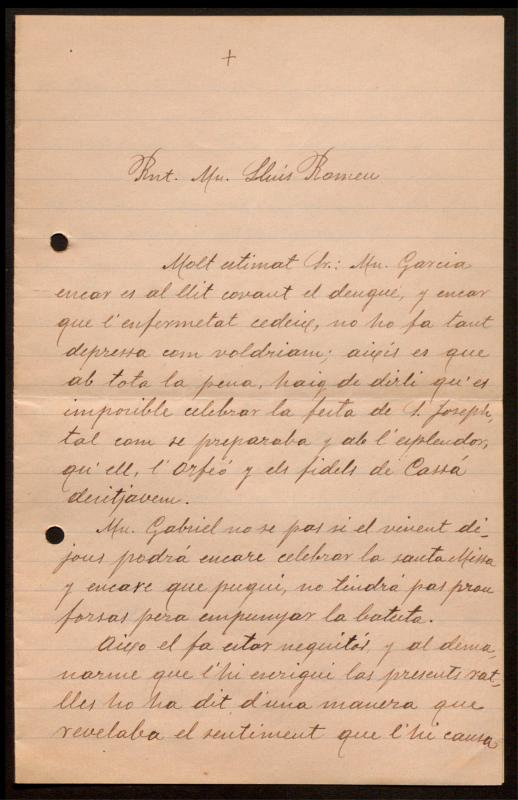 +
Rnt. Mn. Lluis Romeu
Molt estimat Sr.: Mn. Garcia
encar es al llit covant el dengue, y encar
que l'enfermetat cedeix, no ho fa tant
depressa com voldriam; aixis es que
ab tota la pena, haig de dirli qu'es
imposible celebrar la festa de S. Joseph,
tal com se preparaba y ab l'esplendor,
qu'ell, l'Orfeó y els fidels de Cassá
desitjavem.
Mn. Gabriel no se pas si el vinent di-
jous podrá encare celebrar la santa Missa
y encare que pugui, no tindrá pas prou
forsas pera empunyar la batuta.
Aixo el fa estar neguitós, y al dema-
narme que l'hi escrigui las presents rat-
lles ho ha dit d'una manera que
revelaba el sentiment que l'hi causa